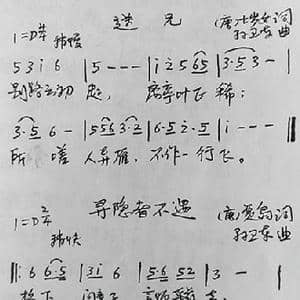 送兄
(唐)七岁女 词
1=D 4/4 稍慢 孙卫东 曲
5 3 i 6 | 5 - - - | i 2 5 6 5 | 3·5 3 - |
别路云初 起, 离亭叶正 稀;
3·5 6 - | 5 5 6 3·2 | 6·5 2·5 | i - - - ‖
所 嗟 人异雁, 不作一行飞。
寻隐者不遇
(唐)贾岛 词
1=D 2/4 稍快 孙卫东 曲
‖: 6 6·5 | 3 i 6 | 5·6 5 2 | 3 - |
松下 问童子 言师采 去